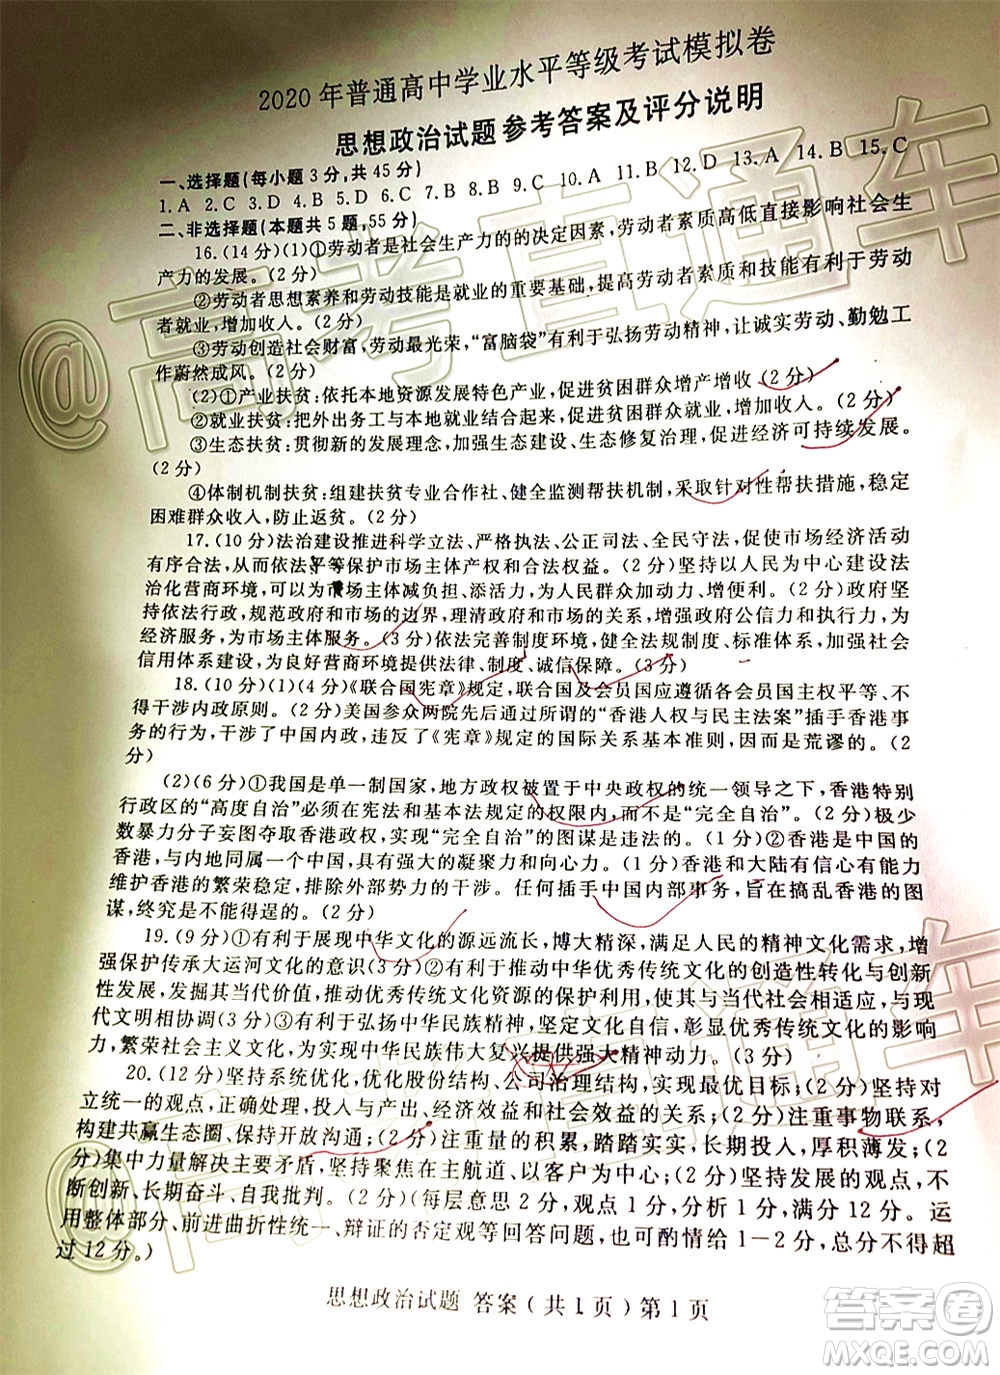 2020年普通高中学业水平等级考试模拟卷
思想政治试题参考答案及评分说明
一、选择题(每小题3分,共45分)
1.A 2.C 3.D 4.B 5.D 6.C 7.B 8.D 9.C 10.A 11.B 12.D 13.A 14.B 15.C
二、非选择题(本题共5题,55分)
16.(14分)(1)①劳动者是社会生产力的的决定因素,劳动者素质高低直接影响社会生
产力的发展。(2分)
②劳动者思想素养和劳动技能是就业的重要基础,提高劳动者素质和技能有利于劳动
者就业,增加收入。(2分)
③劳动创造社会财富,劳动最光荣,“富脑袋”有利于弘扬劳动精神,让诚实劳动、勤勉工
作蔚然成风。(2分)
(2)①产业扶贫:依托本地资源发展特色产业,促进贫困群众增产增收(2分)
②就业扶贫:把外出务工与本地就业结合起来,促进贫困群众就业,增加收入。(2分)
③生态扶贫:贯彻新的发展理念,加强生态建设、生态修复治理,促进经济可持续发展。
(2分)
④体制机制扶贫:组建扶贫专业合作社、健全监测帮扶机制,采取针对性帮扶措施,稳定
困难群众收入,防止返贫。(2分)
17.(10分)法治建设推进科学立法、严格执法、公正司法、全民守法,促使市场经济活动
有序合法,依法平等保护市场主体产权和合法权益。(2分)坚持以人民为中心建设法
治化营商环境,为市场主体减负担、添活力,为人民群众加动力、增便利。(2分)政府坚
持依法行政,规范政府和市场的边界,理清政府和市场的关系,增强政府公信力和执行力,为
经济服务,为市场主体服务。(3分)依法完善制度环境,健全法规制度、标准体系,加强社会
信用体系建设,为良好营商环境提供法律、制度、诚信保障。(3分)
18.(10分)(1)(4分)《联合国宪章》规定,联合国及会员国应遵循各会员国主权平等、不
干涉内政原则。(2分)美国参众两院先后通过所谓的“香港人权与民主法案”插手香港事
务的行为,干涉了中国内政,违反了《宪章》规定的国际关系基本准则,因而是荒谬的。(2
分)
(2)(6分)①我国是单一制国家,地方政权被置于中央政权的统一领导之下,香港特别
行政区的“高度自治”必须在宪法和基本法规定的权限内,而不是“完全自治”。(2分)极少
数暴力分子妄图夺取香港政权,实现“完全自治”的图谋是违法的。(1分)②香港是中国的
香港,与内地同属一个中国,具有强大的凝聚力和向心力。(1分)香港和大陆有信心有能力
维护香港的繁荣稳定,排除外部势力的干涉。任何插手中国内部事务,旨在搞乱香港的图
谋,终究是不能得逞的。(2分)
19.(9分)①有利于展现中华文化的源远流长,博大精深,满足人民的精神文化需求,增
强保护传承大运河文化的意识(3分)②有利于推动中华优秀传统文化的创造性转化与创新
性发展,激活其当代价值,推动优秀传统文化资源的保护利用,使其与当代社会相适应,与现
代文明相协调(3分)③有利于弘扬中华民族精神,坚定文化自信,彰显优秀传统文化的影响
力,繁荣社会主义文化,为实现中华民族伟大复兴提供强大精神动力。(3分)
20.(12分)坚持系统优化,优化股份结构、公司治理结构,实现最优目标;(2分)坚持对
立统一的观点,正确处理,投入与产出、经济效益和社会效益的关系;(2分)注重事物联系,
构建共赢生态圈、保持开放沟通;(2分)注重量的积累,踏踏实实,长期投入,厚积薄发;(2
分)集中力量解决主要矛盾,坚持聚焦在主航道、以客户为中心;(2分)坚持发展的观点,不
断创新、长期奋斗、自我批判。(2分)(每层意思2分,观点1分,分析1分,满分12分。运
用整体部分、前进曲折性统一、辩证的否定观等回答问题,也可酌情给1-2分,总分不得超
过12分。)
思想政治试题 答案(共1页)第1页
@高考直通车
@高考直通车
答案圈
MXQE.COM